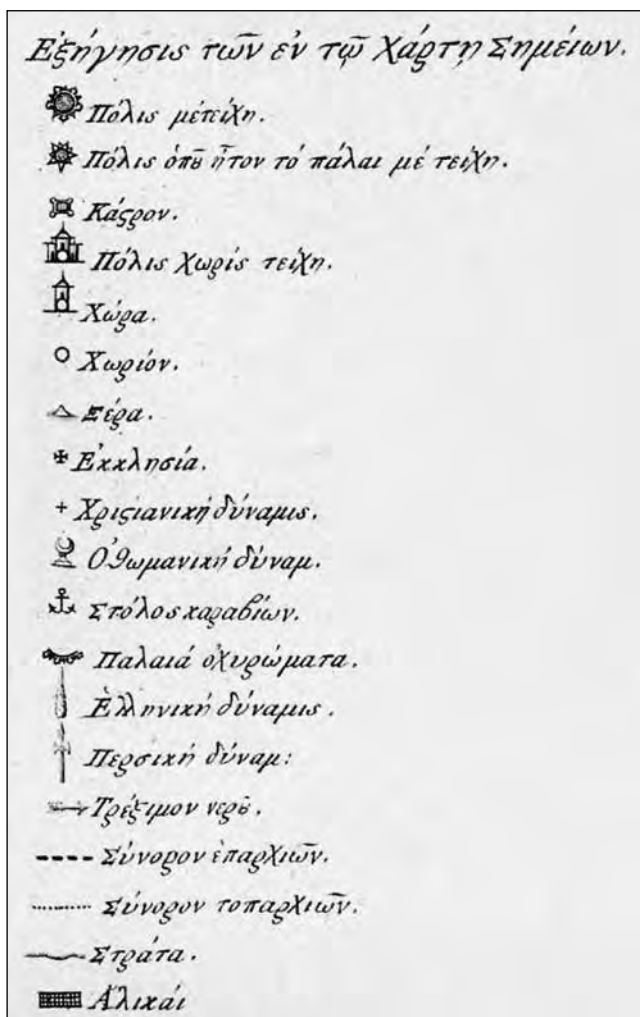 Ἐξήγησις τῶν ἐν τῷ Χάρτῃ Σημείων.
Πόλις μέτείχη.
Πόλις ὁπȣ͂ ἦτον τό πάλαι μέ τείχη.
Κάϛρον.
Πόλις Χωρίς τείχη.
Χώρα.
Χωρίον.
Ξέρα.
Ἐκκλησία.
Χριϛιανική δύναμις.
Ὀθωμανική δύναμ.
Στόλος καραβίων.
Παλαιά ὀχυρώματα.
Ἑλληνική δύναμις.
Περσική δύναμ:
Τρέξιμον νερȣ͂.
Σύνορον ἐπαρχιῶν.
Σύνορον τοπαρχιῶν.
Στράτα.
Ἁλικάι